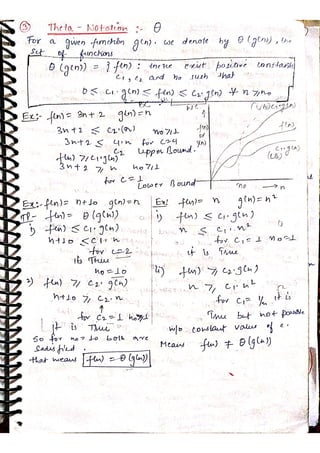 ③ Theta - Notation :- θ
For a given function g(n), we denote by θ(g(n)), the
set of functions
θ(g(n)) = { f(n) : there exist positive constants
c₁, c₂ and no such that
0 ≤ c₁·g(n) ≤ f(n) ≤ c₂·g(n) ∀ n ≥ no
Ex:- f(n) = 3n+2 g(n) = n
3n+2 ≤ c₂·(n) no ≥ 1
3n+2 ≤ 4·n for c=4
c₂ Upper Bound.
f(n) ≥ c₁·g(n)
3n+2 ≥ n no ≥ 1
for c=1
Lower Bound
(UB) c₂·g(n)
f(n)
c₁·g(n)
(LB)
f(n)
or
g(n)
no → n
Ex:- f(n) = n+10 g(n) = n
f(n) = θ(g(n))
i) f(n) ≤ c₁·g(n)
n+10 ≤ c₁·n
for c=2
its True
no = 10
2) f(n) ≥ c₂·g(n)
n+10 ≥ c₂·n
for c₂=1 no≥1
it is True
So for no = 10 both are
satisfied.
that means f(n) = θ(g(n))
Ex: f(n) = n g(n) = n²
i) f(n) ≤ c₁·g(n)
n ≤ c₁·n²
for c₁=1 no=1
it is True
ii) f(n) ≥ c₂·g(n)
n ≥ c₁·n²
for c₁ = 1/n it is
True but not possible
w/o constant value of c.
Means f(n) ≠ θ(g(n))